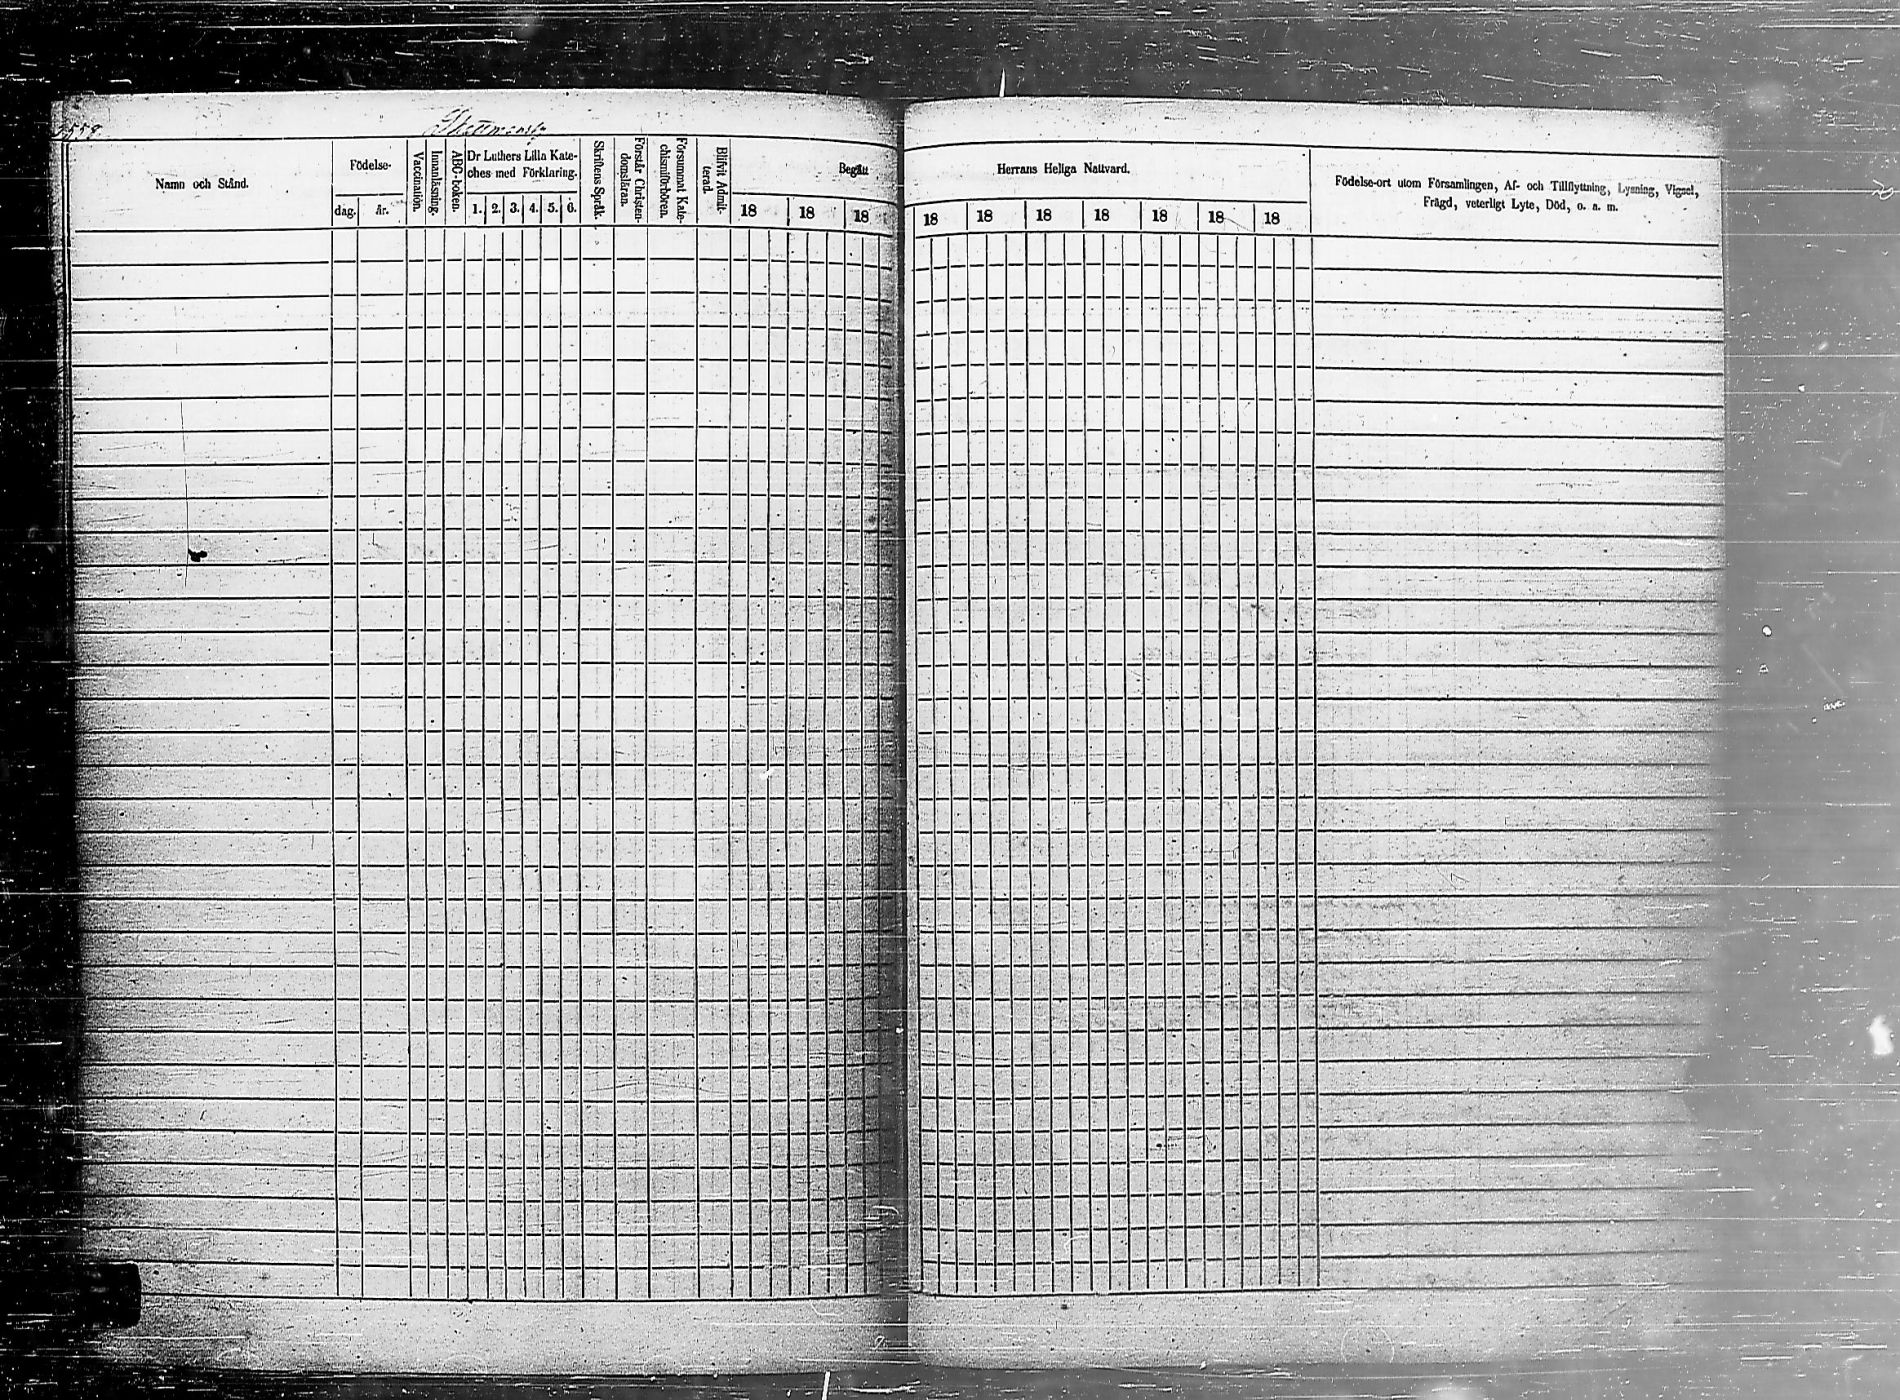 Namn och Stånd.
Födelse-
dag. år.
Vaccination.
Innanläsning.
ABC-boken.
Dr Luthers Lilla Kate-
ches med Förklaring.
1. 2. 3. 4. 5. 6.
Skriftens Språk.
Förstår Christen-
domsläran.
Försummat Kate-
chismiförhören.
Blifvit Admit-
terad.
Begått
18 18 18
Herrans Heliga Nattvard.
18 18 18 18 18 18 18
Födelse-ort utom Församlingen, Af- och Tillflyttning, Lysning, Vigsel,
Frägd, veterligt Lyte, Död, o. s. m.